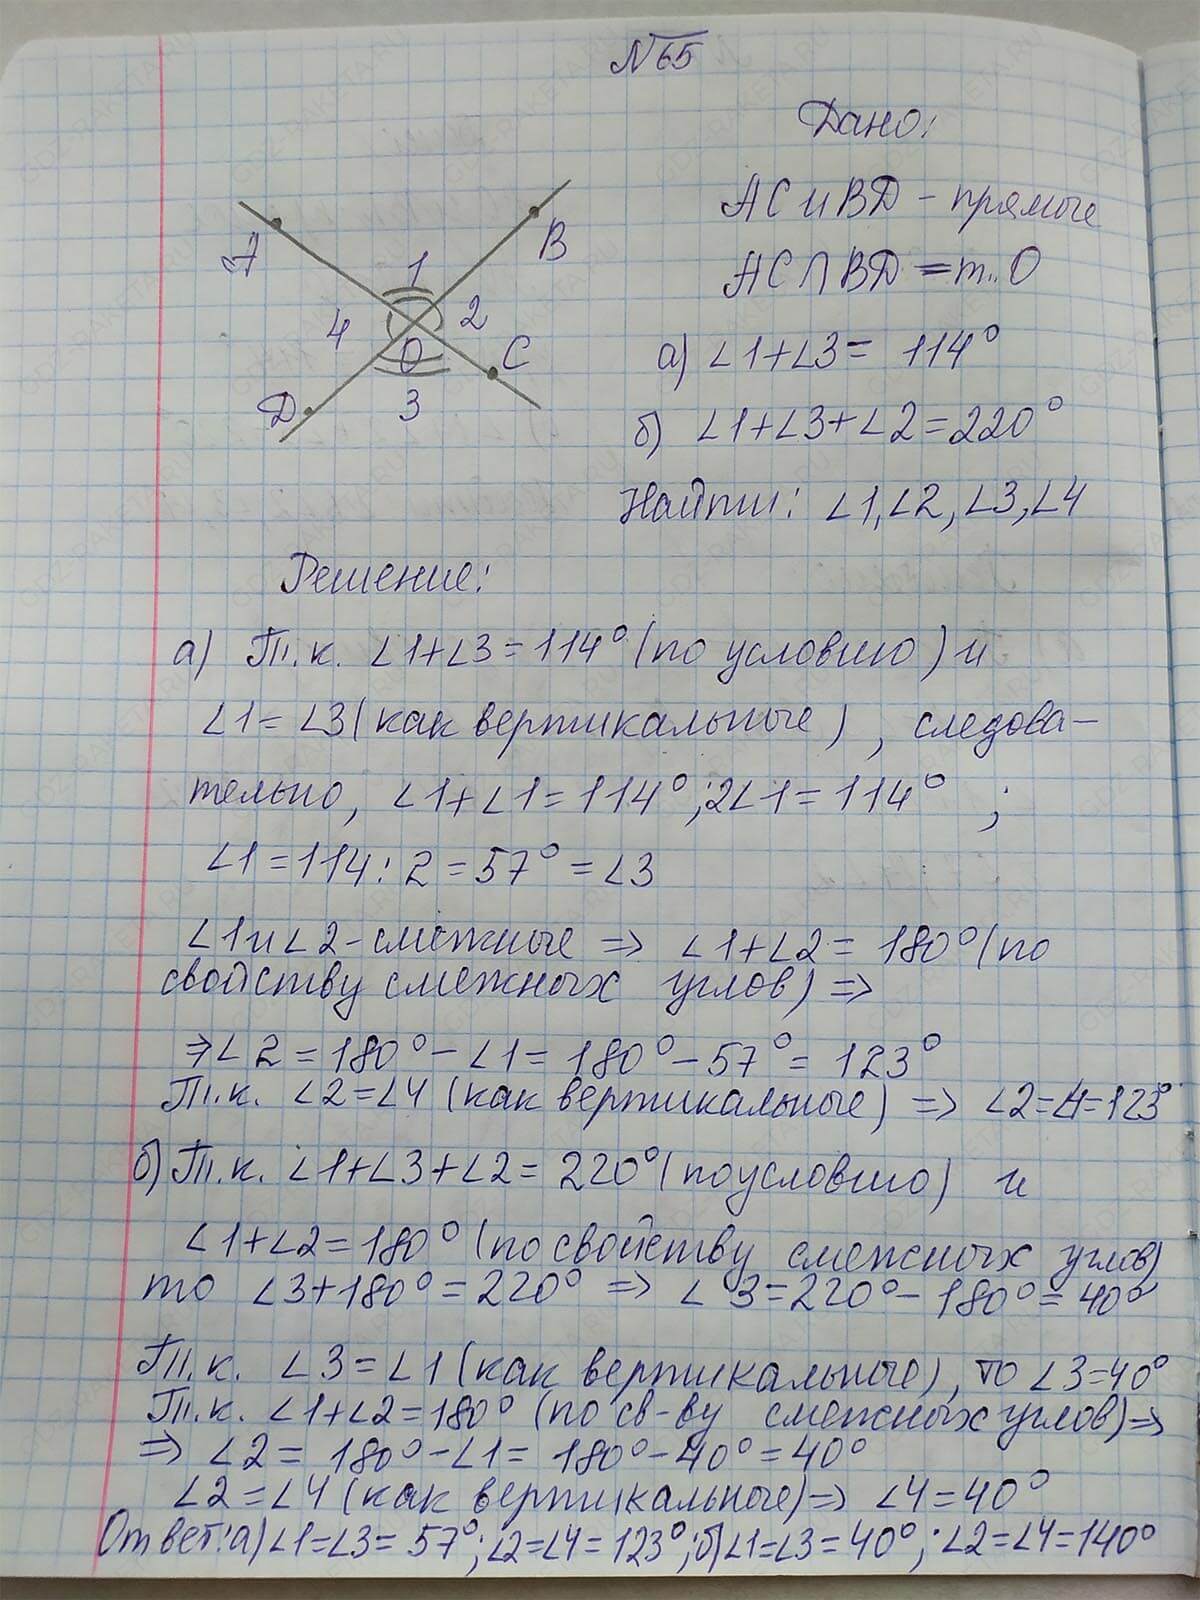 №65
Дано:
AC и BD - прямые
AC∩BD = т. O
а) ∠1+∠3= 114°
б) ∠1+∠3+∠2=220°
Найти: ∠1,∠2,∠3,∠4
A
B
1
2
4
O
C
D
3
Решение:
а) Т.к. ∠1+∠3=114° (по условию) и
∠1=∠3(как вертикальные), следова-
тельно, ∠1+∠1=114°;2∠1=114° ;
∠1=114:2=57°=∠3
∠1и∠2-смежные => ∠1+∠2= 180°(по
свойству смежных углов) =>
=>∠2=180°-∠1=180°-57°=123°
Т.к. ∠2=∠4 (как вертикальные) => ∠2=∠4=123°
б) Т.к. ∠1+∠3+∠2= 220°(по условию) и
∠1+∠2=180° (по свойству смежных углов)
то ∠3+180°=220° => ∠3=220°-180°=40°
Т.к. ∠3=∠1 (как вертикальные), то ∠3=40°
Т.к. ∠1+∠2=180° (по св-ву смежных углов)=>
=> ∠2= 180°-∠1= 180°-40°=40°
∠2=∠4 (как вертикальные)=> ∠4=40°
Ответ:а)∠1=∠3= 57°;∠2=∠4=123°;б)∠1=∠3=40°;∠2=∠4=140°